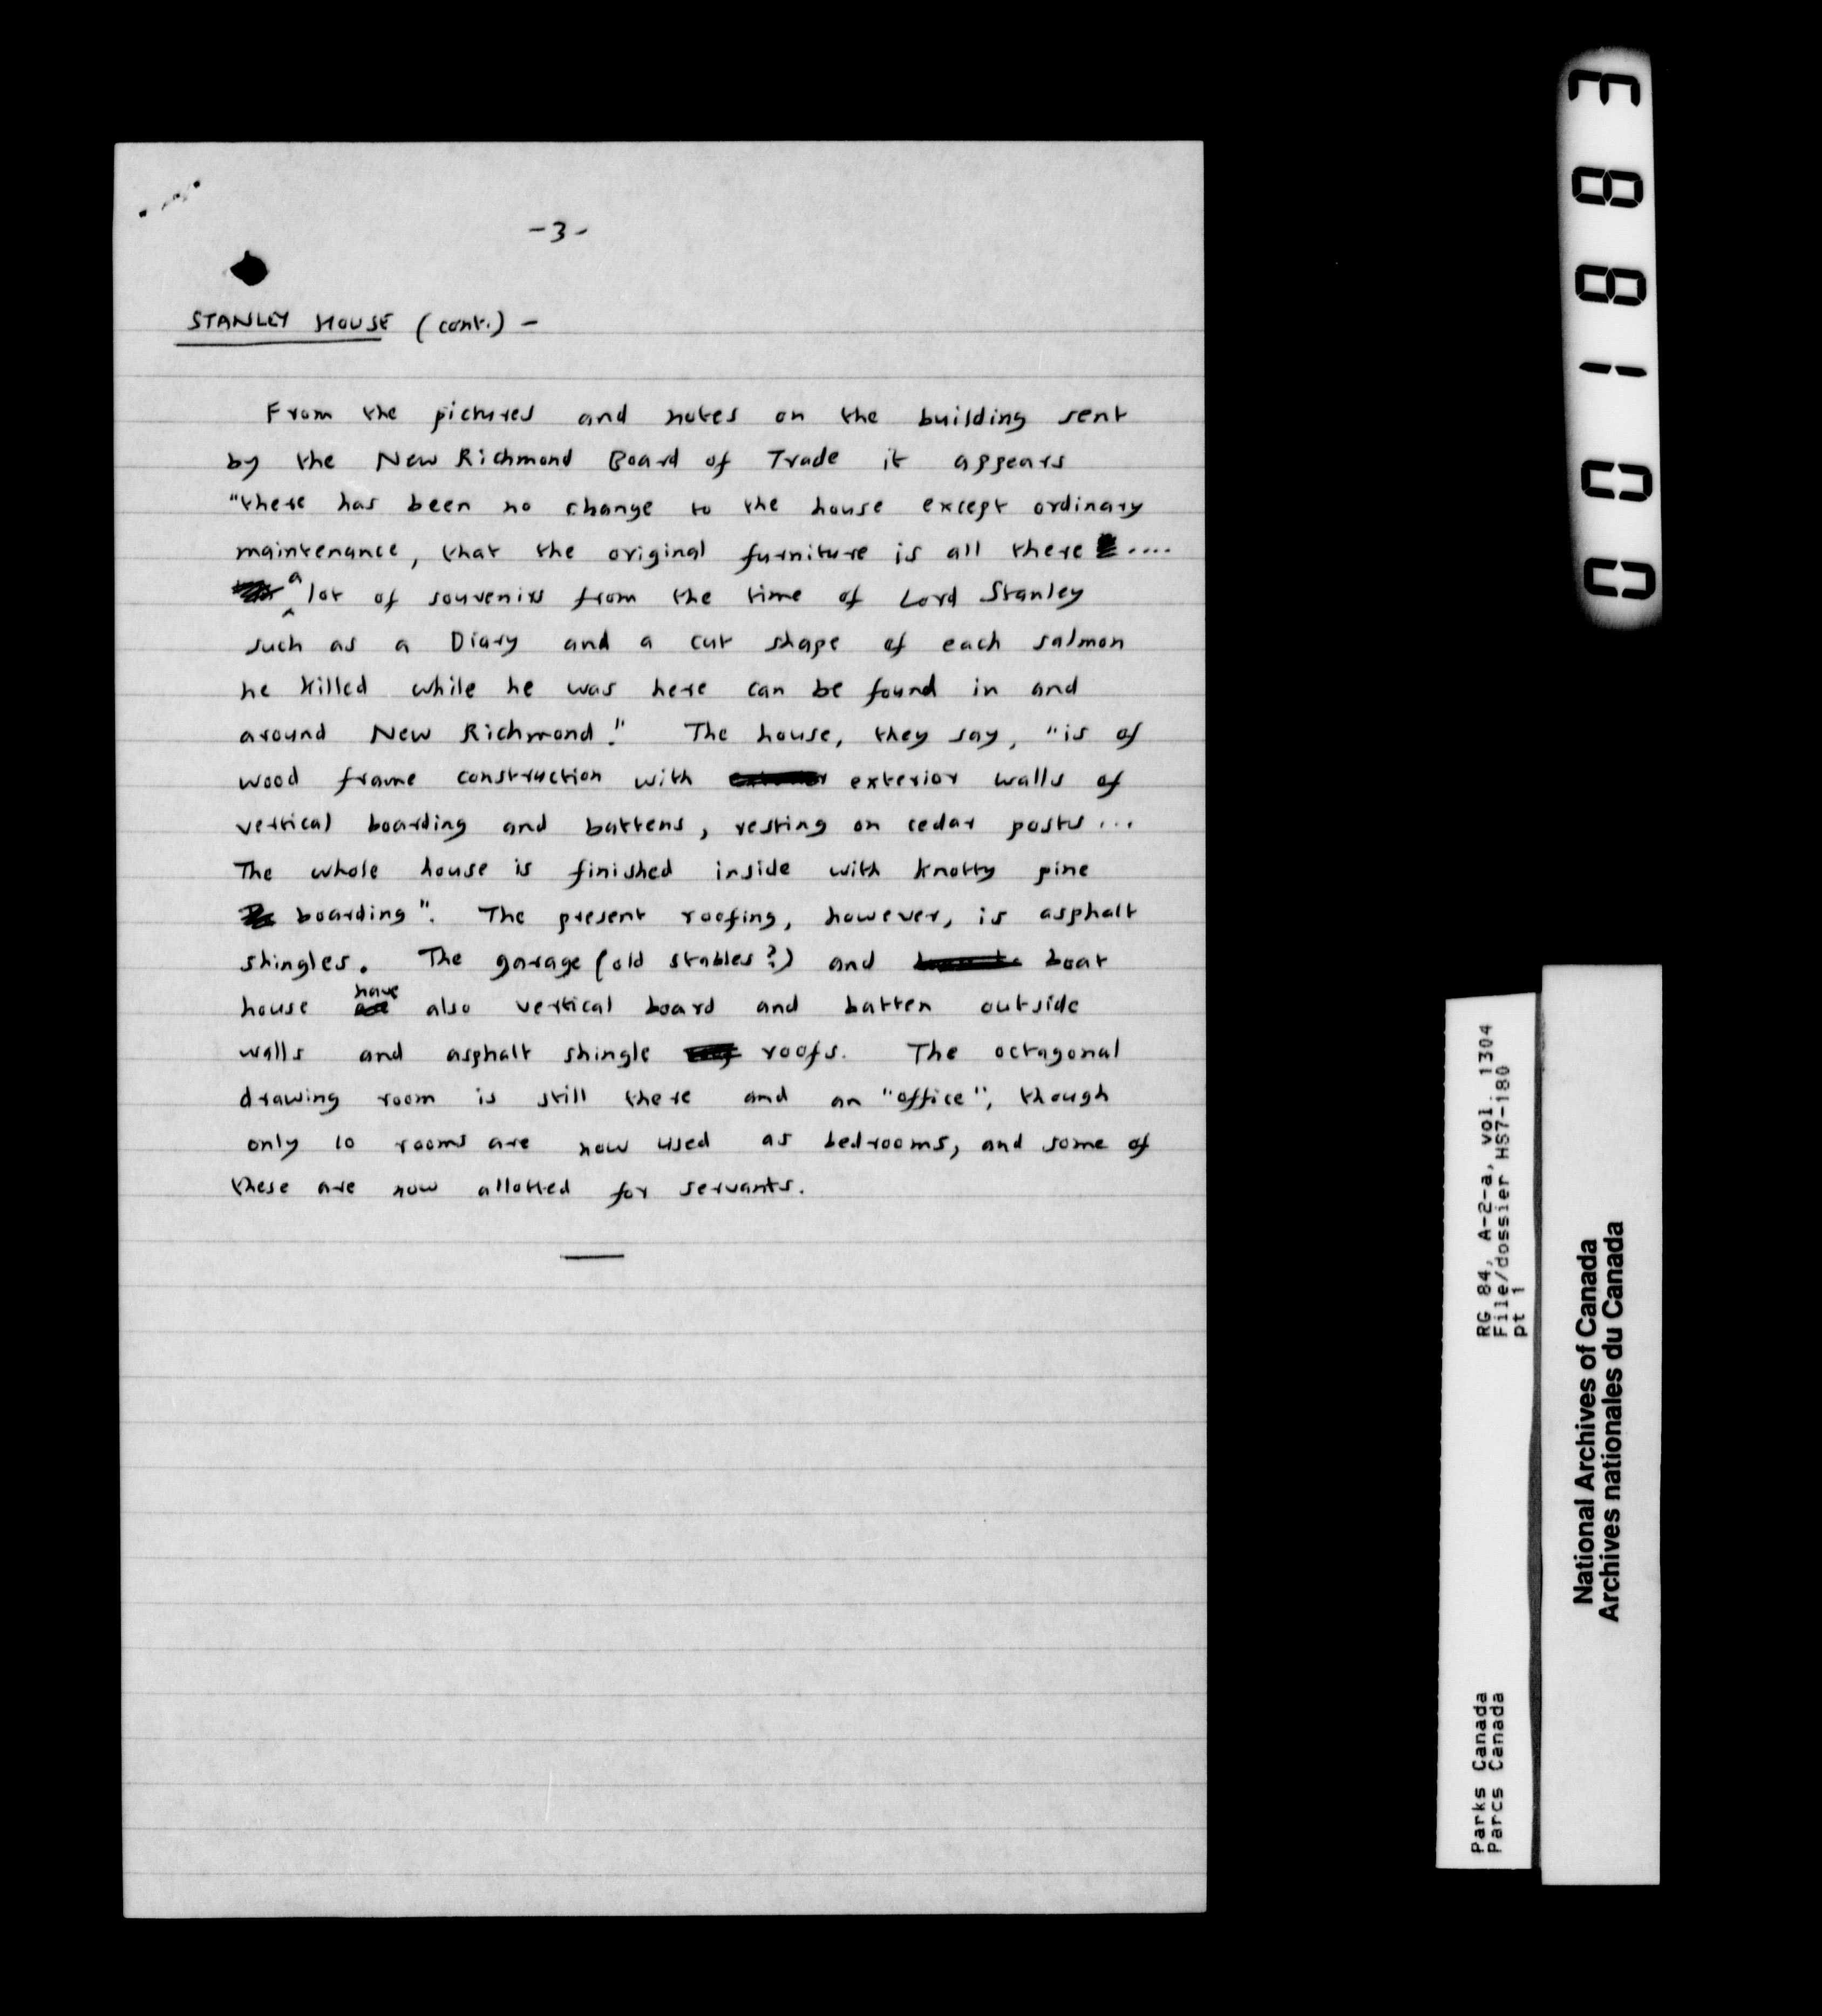 -3-
STANLEY HOUSE (cont.) -
From the pictures and notes on the building sent
by the New Richmond Board of Trade it appears
"there has been no change to the house except ordinary
maintenance, that the original furniture is all there ....
a lot of souvenirs from the time of Lord Stanley
such as a Diary and a cut shape of each salmon
he killed while he was here can be found in and
around New Richmond." The house, they say, "is of
wood frame construction with exterior walls of
vertical boarding and battens, resting on cedar posts...
The whole house is finished inside with knotty pine
boarding". The present roofing, however, is asphalt
shingles. The garage (old stables?) and boat
house have also vertical board and batten outside
walls and asphalt shingle roofs. The octagonal
drawing room is still there and an "office", though
only 10 rooms are now used as bedrooms, and some of
these are now allotted for servants.
001883
RG 84, A-2-a, vol. 1304
File/dossier HS7-180
pt 1
Parks Canada
Parcs Canada
National Archives of Canada
Archives nationales du Canada